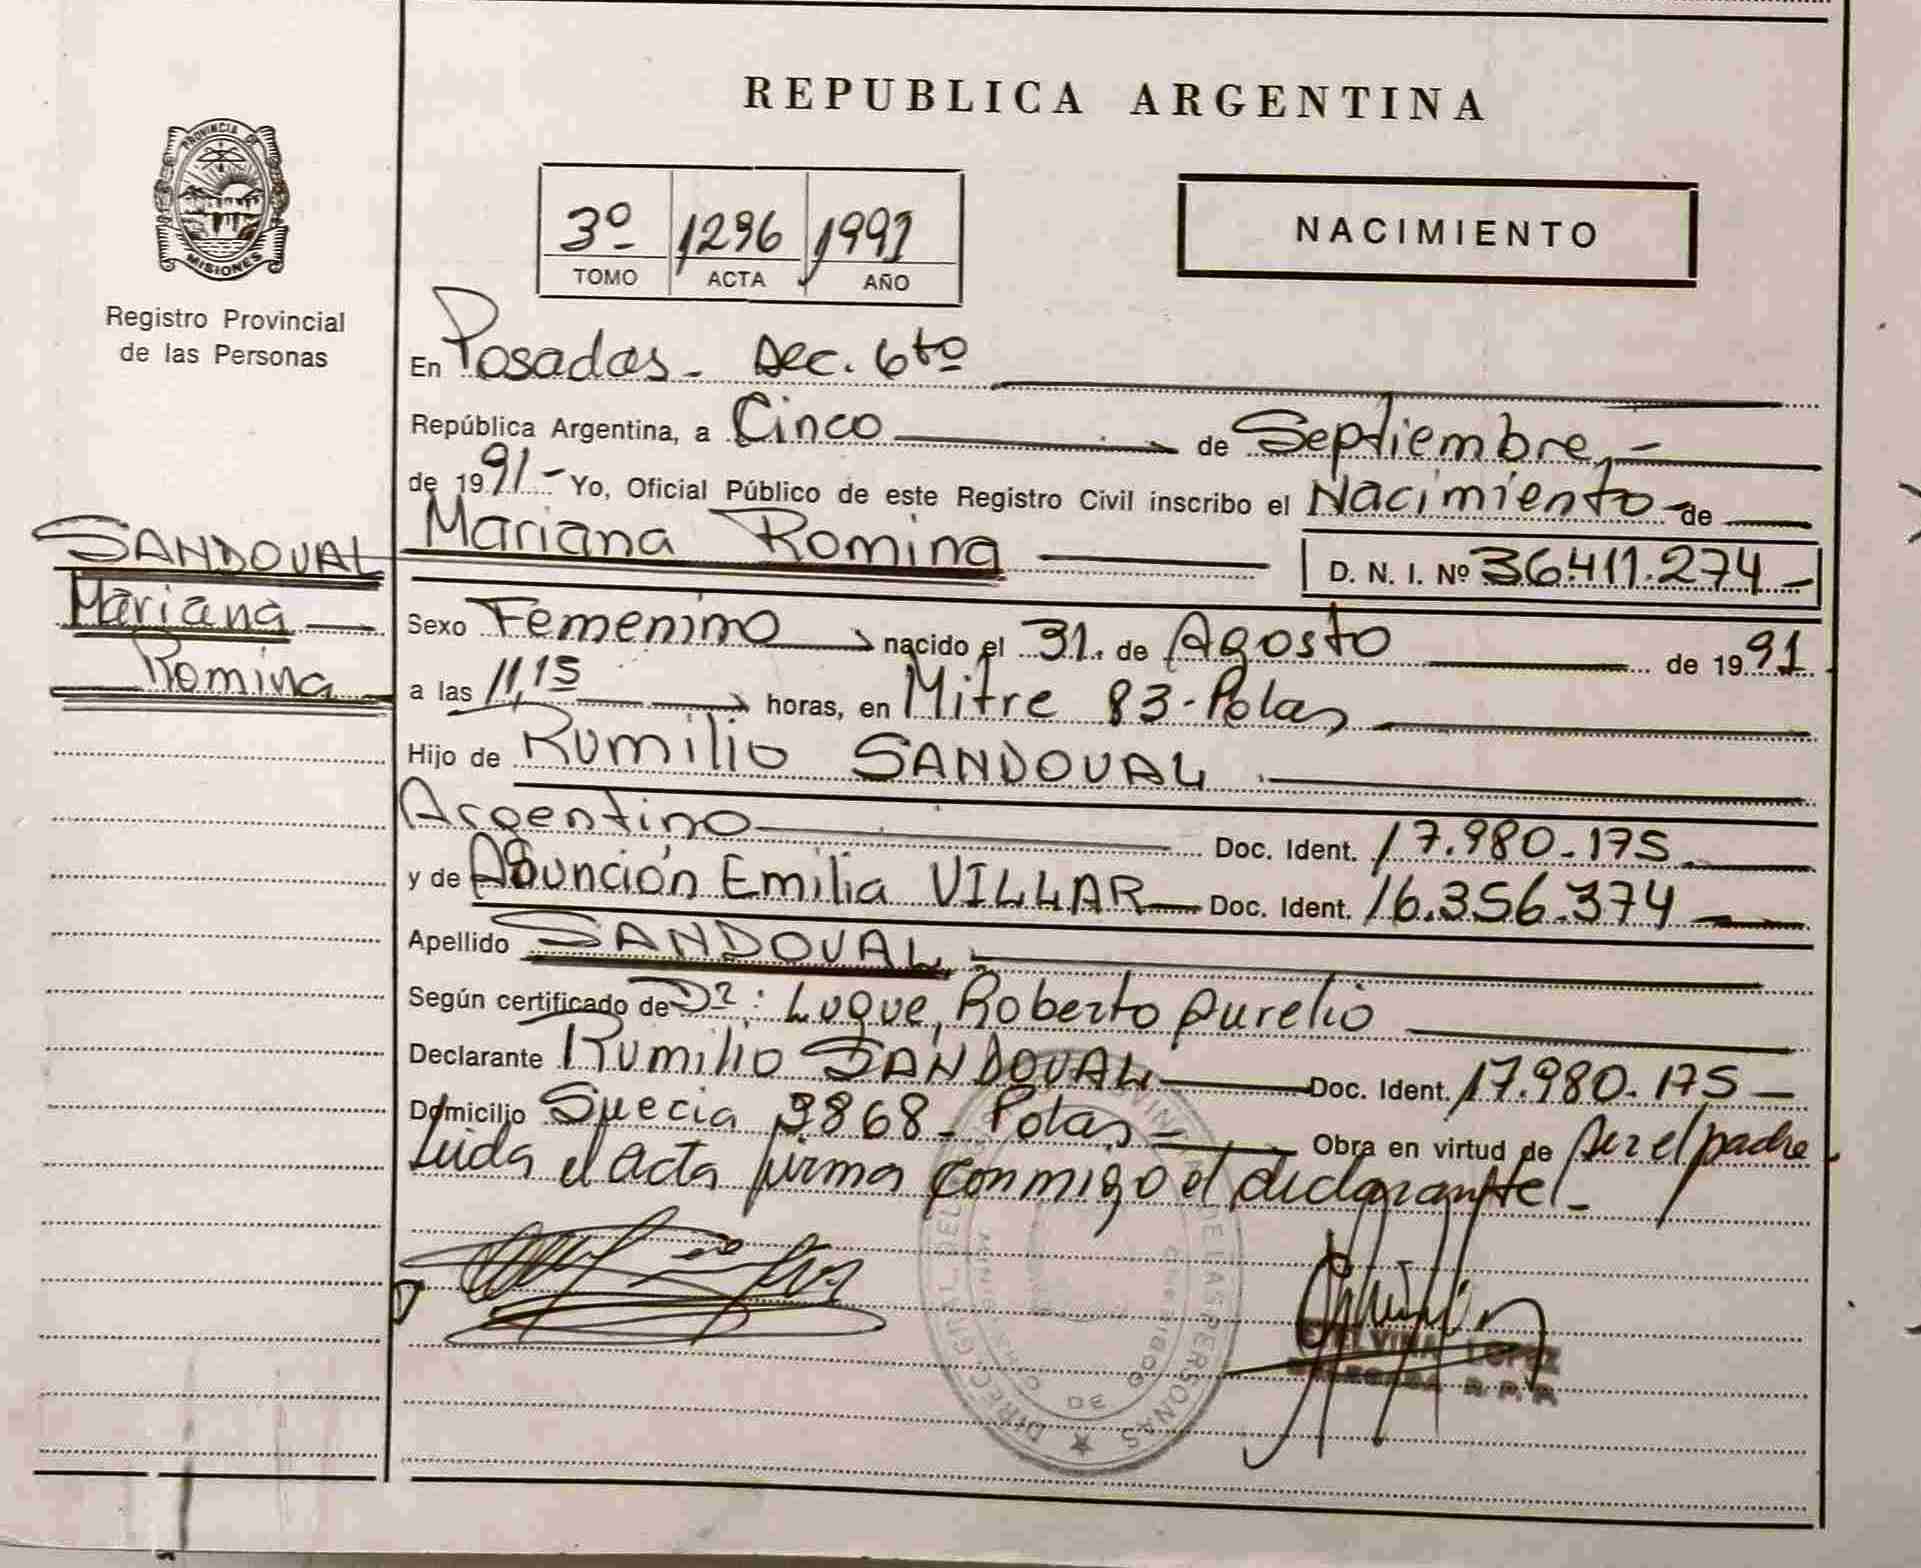 REPUBLICA ARGENTINA
PROVINCIA DE
MISIONES
Registro Provincial
de las Personas
3º 1296 1991
TOMO ACTA AÑO
NACIMIENTO
En Posadas - Sec. 6to
República Argentina, a Cinco de Septiembre,-
de 1991- Yo, Oficial Público de este Registro Civil inscribo el Nacimiento de
SANDOVAL
Mariana
Romina
Mariana Romina D. N. I. Nº 36.411.274-
Sexo Femenino nacido el 31. de Agosto de 1991
a las 11,15 horas, en Mitre 83-Pdas
Hijo de Rumilio SANDOVAL
Argentino Doc. Ident. 17.980.175
y de Asunción Emilia VILLAR Doc. Ident. 16.356.374
Apellido SANDOVAL
Según certificado de Dr: Luque, Roberto Aurelio
Declarante Rumilio SANDOVAL Doc. Ident. 17.980.175-
Domicilio Suecia 3868- Pdas- Obra en virtud de ser el padre
Leida el acta firma conmigo el declarante-
LOPEZ
DELEGADA R. P. P.
DE LAS PERSONAS